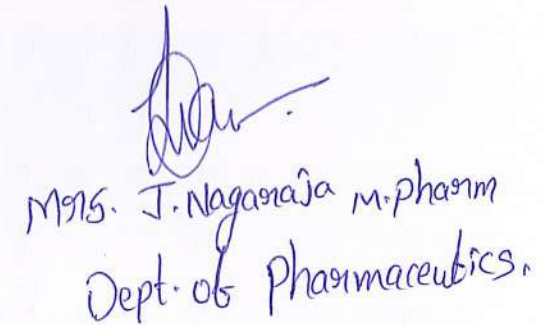 Mrs. J. Nagaraja M.Pharm
Dept. of Pharmaceutics.